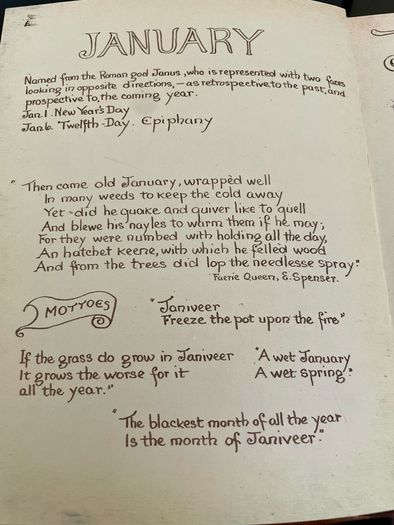 JANUARY
Named from the Roman god Janus, who is represented with two faces
looking in opposite directions, — as retrospective to the past, and
prospective to, the coming year.
Jan. 1. New Year's Day
Jan 6. Twelfth-Day. Epiphany
"Then came old January, wrappèd well
In many weeds to keep the cold away
Yet did he quake and quiver like to quell
And blewe his nayles to warm them if he may;
For they were numbed with holding all the day,
An hatchet keene, with which he felled wood
And from the trees did lop the needlesse spray."
Faerie Queen, E. Spenser.
MOTTOES
"Janiveer
Freeze the pot upon the fire"
If the grass do grow in Janiveer
It grows the worse for it
all the year."
"A wet January
A wet spring."
"The blackest month of all the year
Is the month of Janiveer."